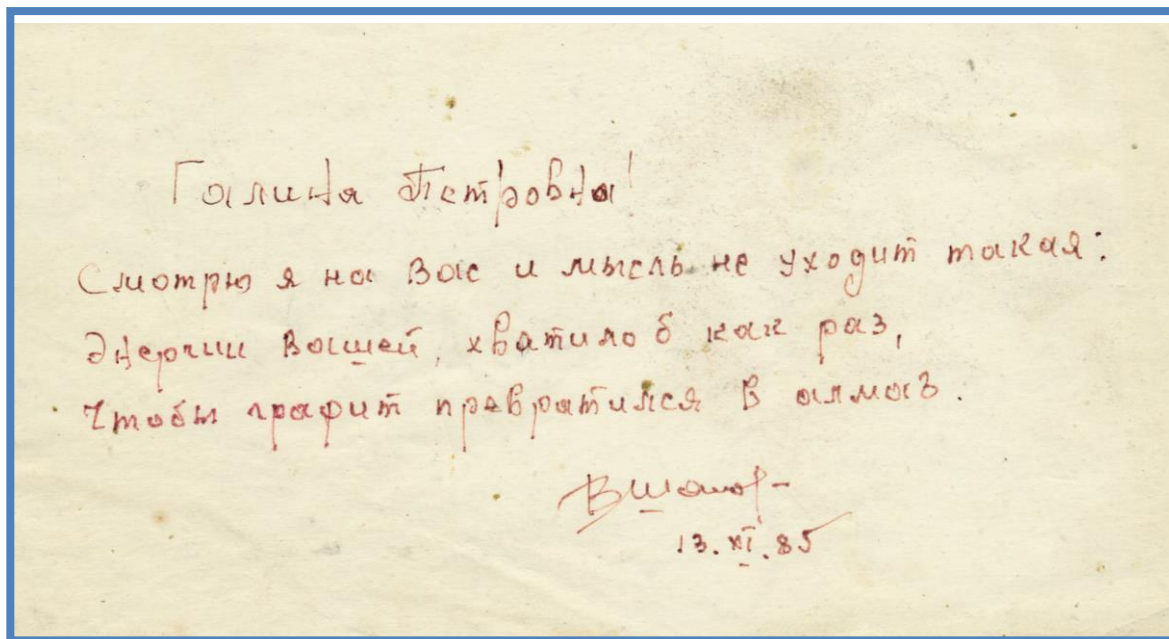 Галина Петровна!
Смотрю я на Вас и мысль не уходит такая:
Энергии Вашей, хватило б как раз,
Чтобы графит превратился в алмаз.
13.XI.85